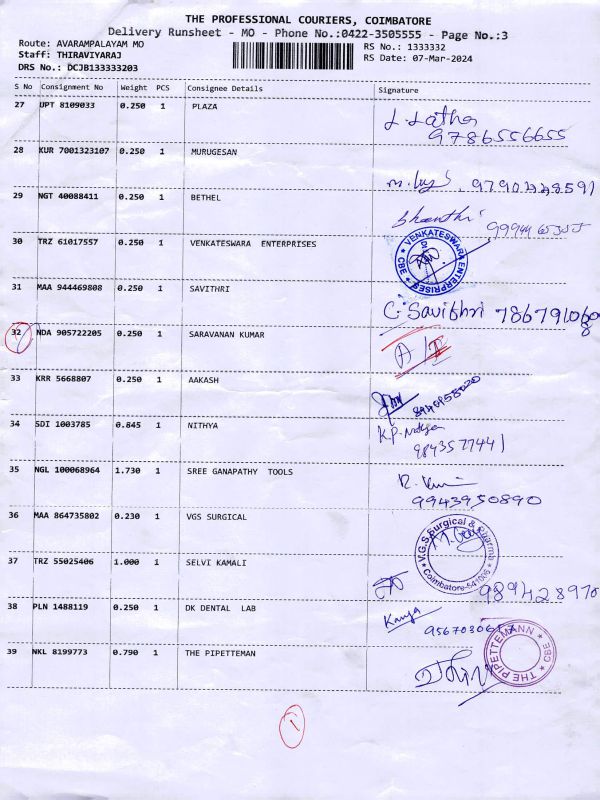 THE PROFESSIONAL COURIERS, COIMBATORE
Delivery Runsheet - MO - Phone No.:0422-3505555 - Page No.:3
Route: AVARAMPALAYAM MO
RS No.: 1333332
Staff: THIRAVIYARAJ
RS Date: 07-Mar-2024
DRS No.: DCJB133333203
S No Consignment No Weight PCS Consignee Details Signature
27 UPT 8109033 0.250 1 PLAZA
L. Latha
9786556655
28 KUR 7001323107 0.250 1 MURUGESAN
29 NGT 40088411 0.250 1 BETHEL
30 TRZ 61017557 0.250 1 VENKATESWARA ENTERPRISES
VENKATESWARA ENTERPRISES CBE
31 MAA 944469808 0.250 1 SAVITHRI
C. Savithri
32 NDA 905722205 0.250 1 SARAVANAN KUMAR
33 KRR 5668807 0.250 1 AAKASH
34 SDI 1003785 0.845 1 NITHYA
9843577441
35 NGL 100068964 1.730 1 SREE GANAPATHY TOOLS
9943950890
36 MAA 864735802 0.230 1 VGS SURGICAL
V.G.S. Surgical & Pharma
Coimbatore-541006
37 TRZ 55025406 1.000 1 SELVI KAMALI
38 PLN 1488119 0.250 1 DK DENTAL LAB
Kanya
39 NKL 8199773 0.790 1 THE PIPETTEMAN
THE PIPETTEMANN CBE
1